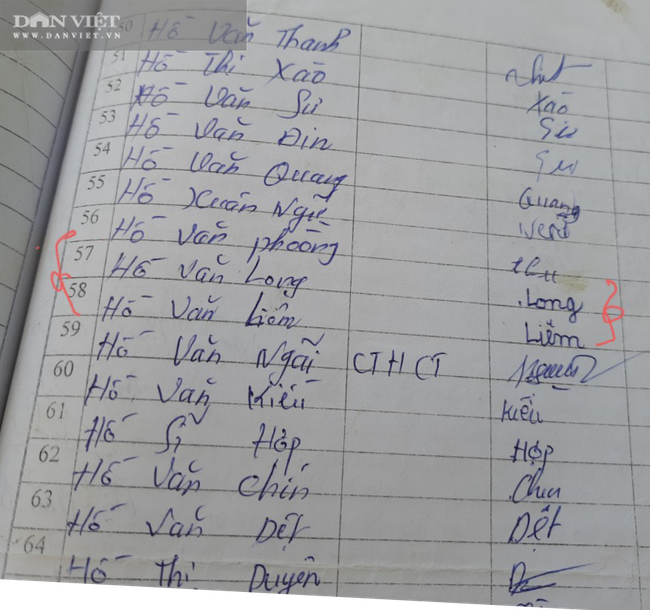 DANVIET
WWW.DANVIET.VN
50 Hồ Văn Thanh
51 Hồ Thị Xảo Xảo
52 Hồ Văn Sư Sư
53 Hồ Văn Đin
54 Hồ Văn Quang Quang
55 Hồ Xuân Ngữ
56 Hồ Văn Phoòng
57 Hồ Văn Long Long
58 Hồ Văn Liêm Liêm
59 Hồ Văn Ngãi CTHCT
60 Hồ Văn Kiều Kiều
61 Hồ Sĩ Hợp Hợp
62 Hồ Văn Chín Chín
63 Hồ Văn Dết Dết
64 Hồ Thị Duyên